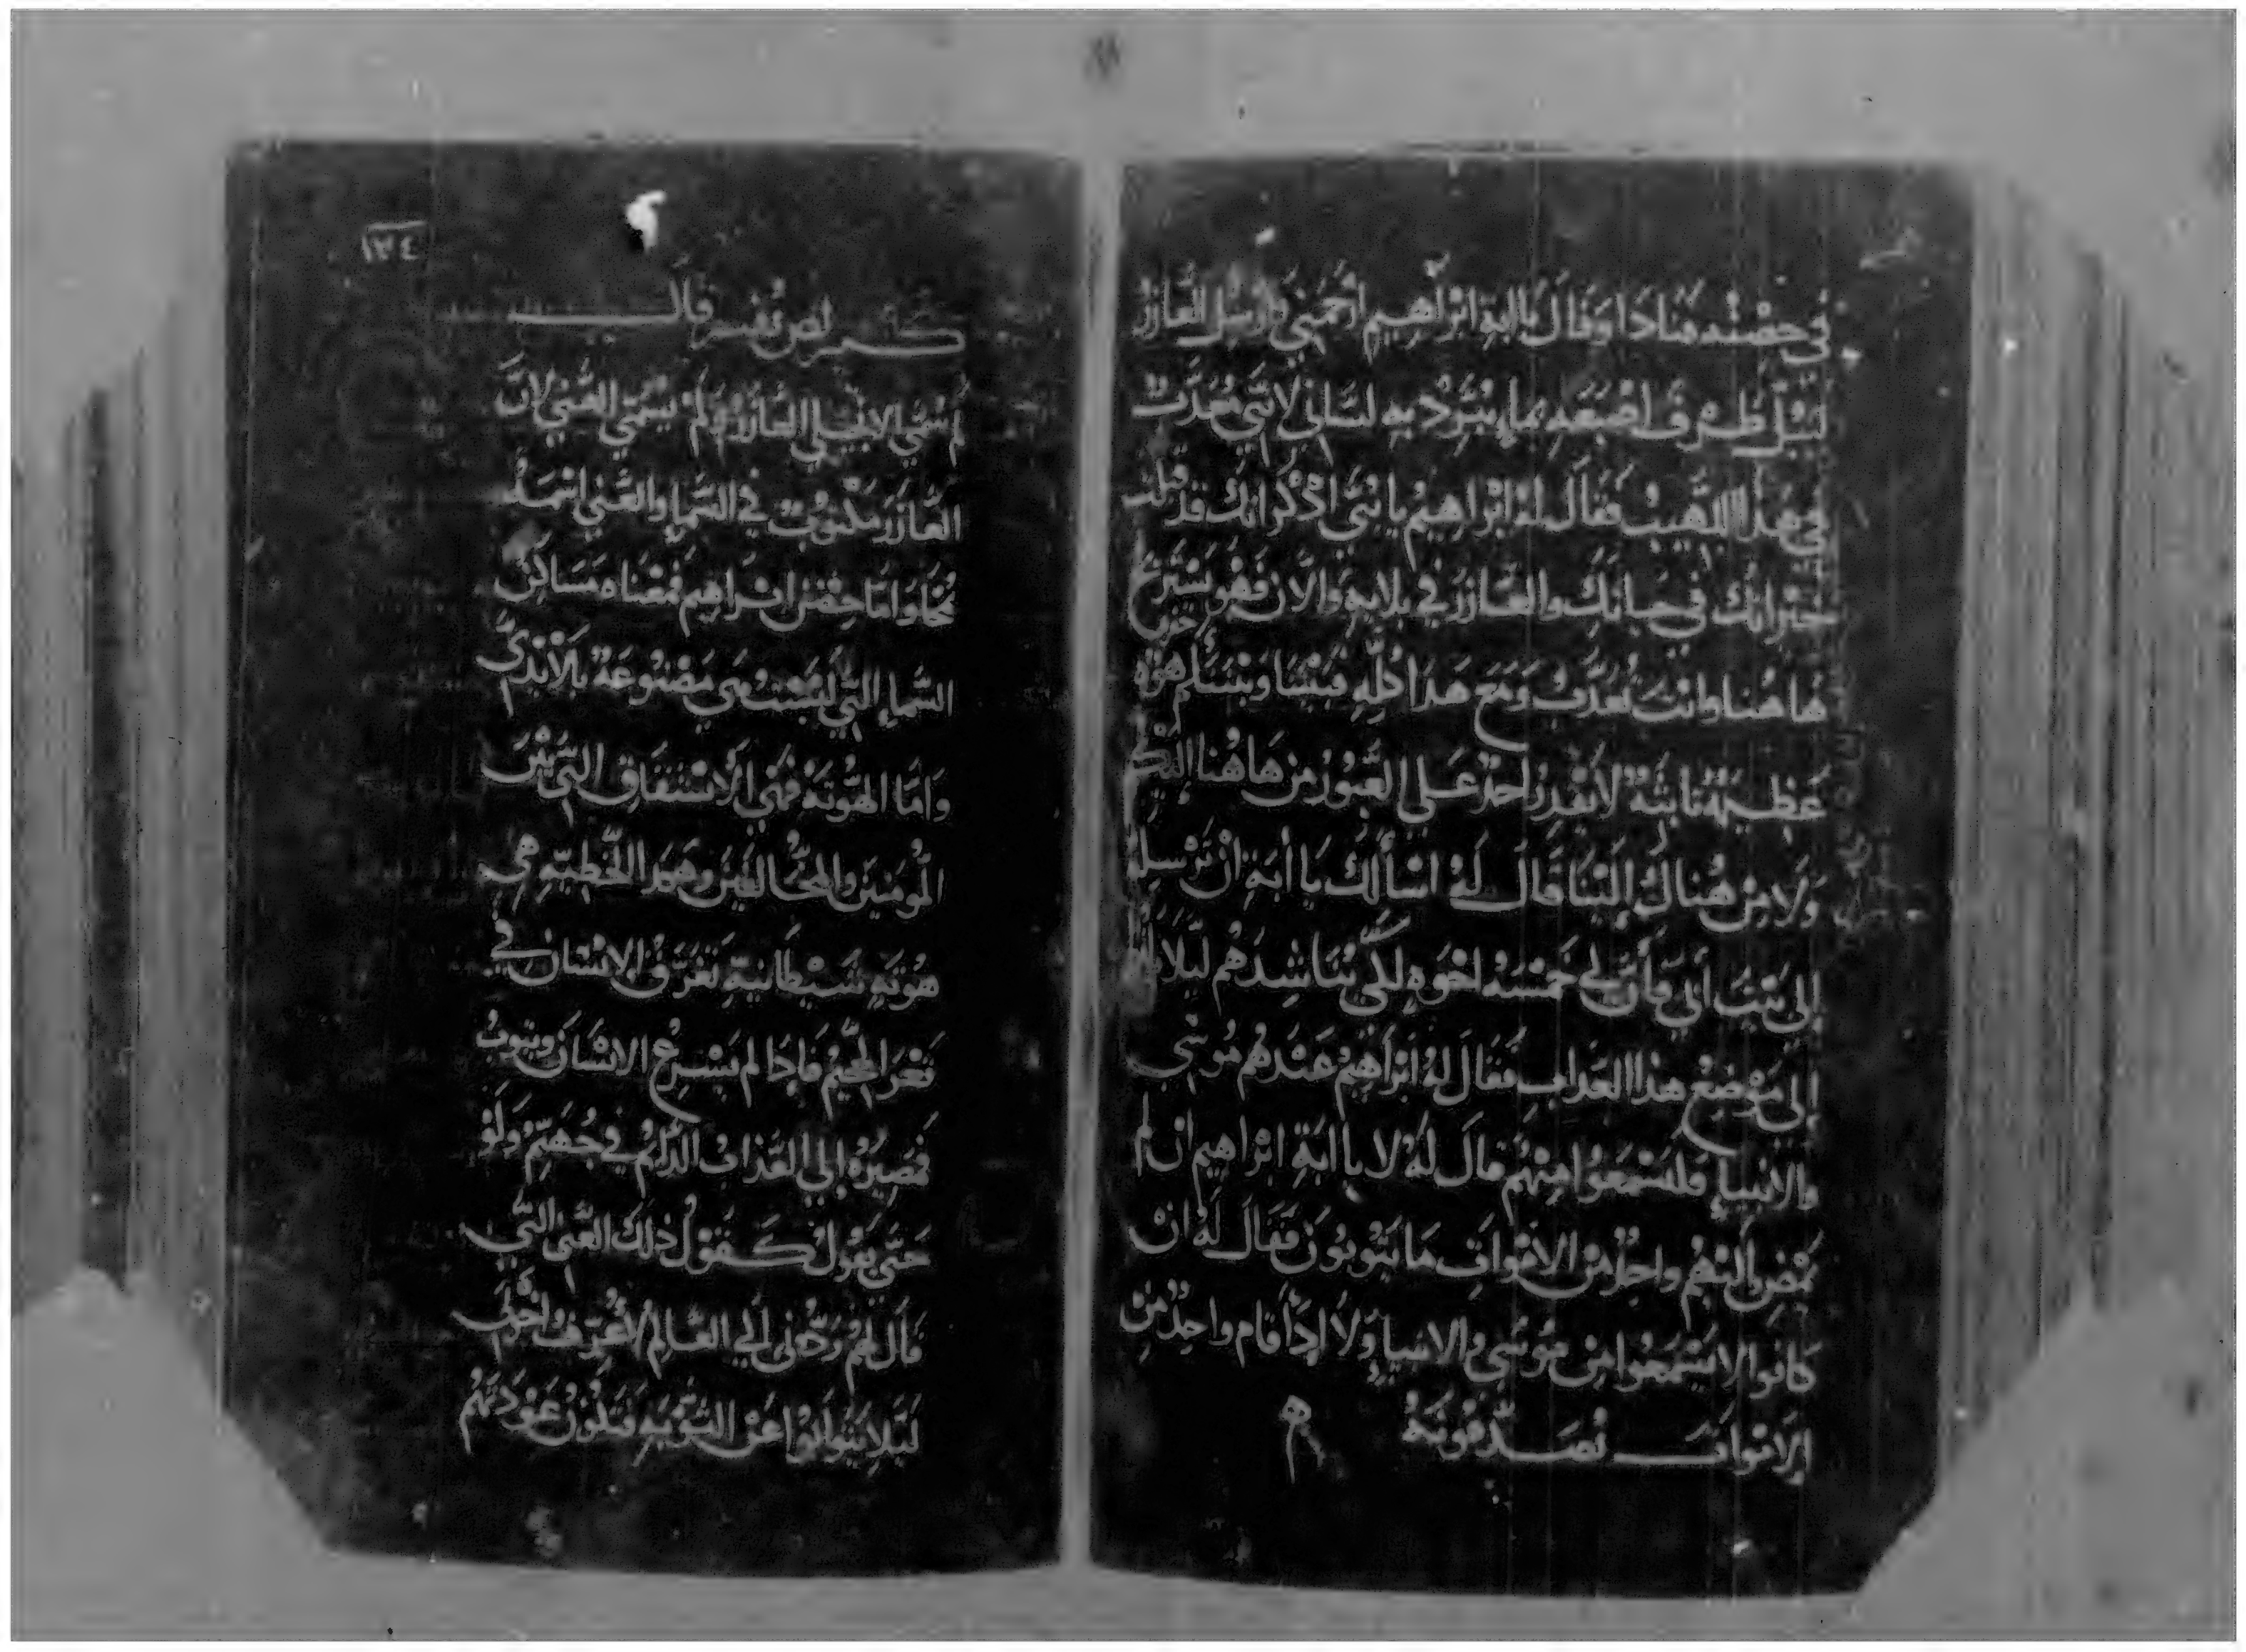 في حضنه فنادا وقال يا ابة ابراهيم ارحمني وارسل العازر
ليبل طرف اصبعه بماء يبرد به لساني لانني معذب
في هذا اللهيب فقال له ابراهيم يا بني اذكر انك قد قبلت
خيراتك في حياتك والعازر في بلايه والان فهو يستريح
هاهنا وانت تعذب ومع هذا كله فبيننا وبينكم هوة
عظيمة ثابتة لا يقدر احد على العبور من هاهنا اليكم
ولا من هناك الينا قال له اسالك يا أبة ان ترسله
إلى بيت أبي فأن لي خمسه اخوه لكي يناشدهم ليلا ياتوا
إلى موضع هذا العذاب فقال له ابراهيم عندهم موسى
والانبياء فليسمعوا منهم قال له لا يا ابة ابراهيم ان لم
يمض اليهم واحد من الاموات ما يتوبون فقال له ان
كانوا لا يستمعوا من موسى والانبيا ولا اذا قام واحد من
الاموات يصدقونه
١٣٤
قال
لم سمي الانجيل العازر ولم يسمي الغني لان
العازر مكتوب في السماء والغني اسمه
محا واما حضن ابراهيم فمعناه مساكن
السماء التي ليست هي مصنوعة بالأيدي
واما الهوته فهي الاستقاق التي بين
المومنين والمخالفين وهذه الخطية هي
هوته شيطانية تغرق الانسان في
قعر الجحيم فاذا لم يسرع الانسان ويتوب
فمصيره إلى العذاب الدائم في جهنم ولو
حتى يقول كقول ذلك الغني التي
قال لهم ردني الى العالم لأعرف اخوتي
ليلا يتوانوا عن التوبه فتكون عودتهم